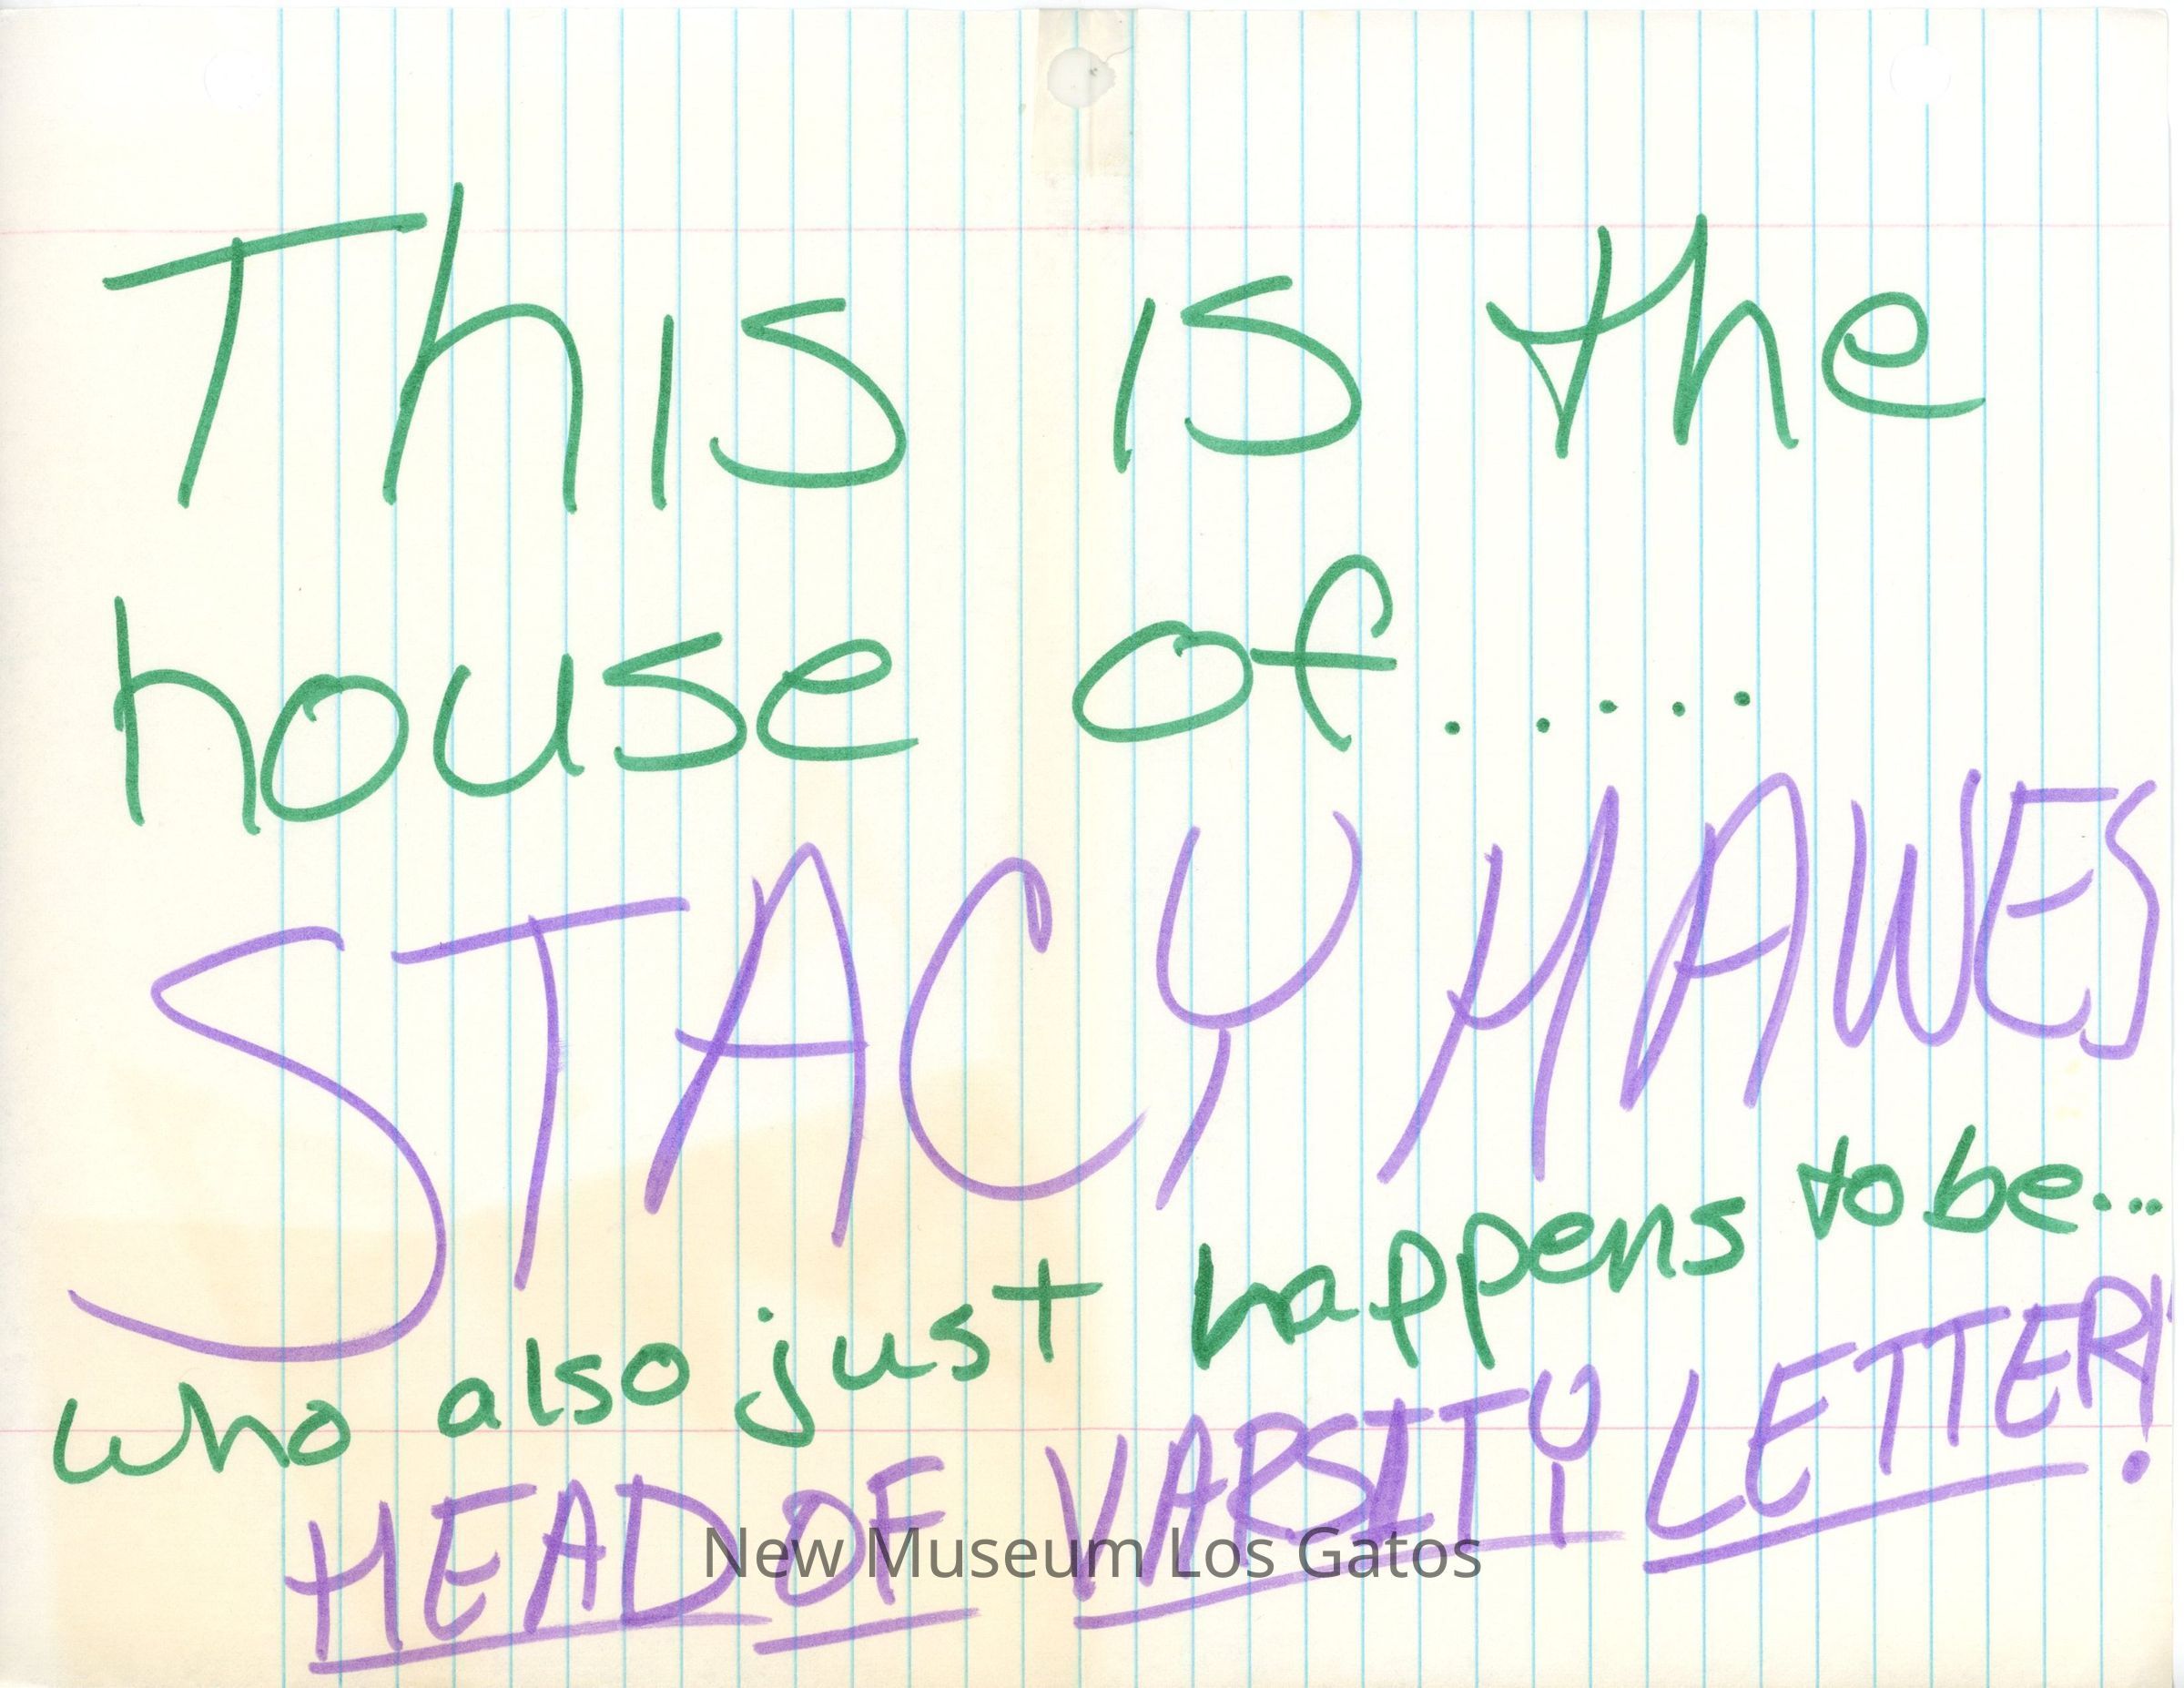 This is the
house of.....
STACY HAWES
who also just happens to be...
HEAD OF VARSITY LETTER!
New Museum Los Gatos